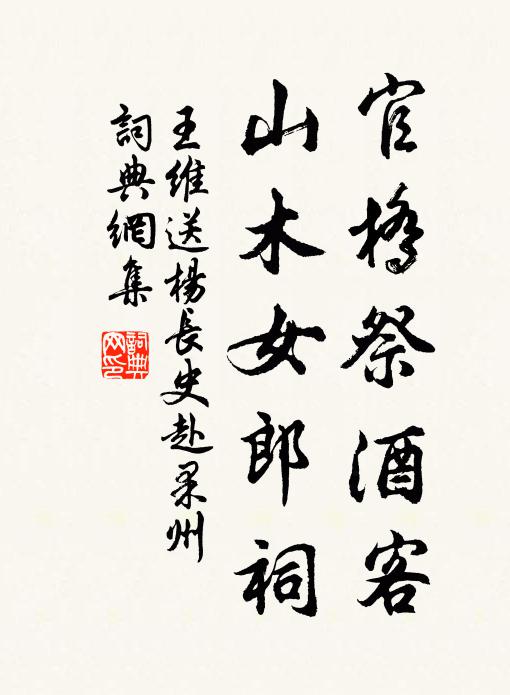 官橋祭酒客
山木女郎祠
王維送楊長史赴果州
詞典網集
詞典網印